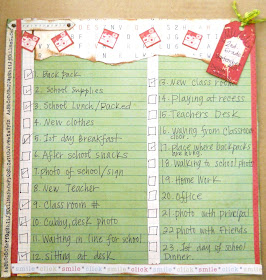 2nd Grade
1. Back pack
2. School Supplies
3. School Lunch/Packed
4. New clothes
5. 1st day Breakfast
6. After school snacks
7. photo of school/sign
8. New Teacher
9. Class room #
10. Cubby, desk photo
11. Waiting in line for school
12. Sitting at desk
13. New Class room
14. Playing at recess
15. Teachers Desk
16. Waving from Classroom door
17. place where backpacks
18. Walking to school photo
19. Home Work
20. Office
21. photo with principal
22. photo with Friends
23. 1st day of school
Dinner
click smile click smile click smile click